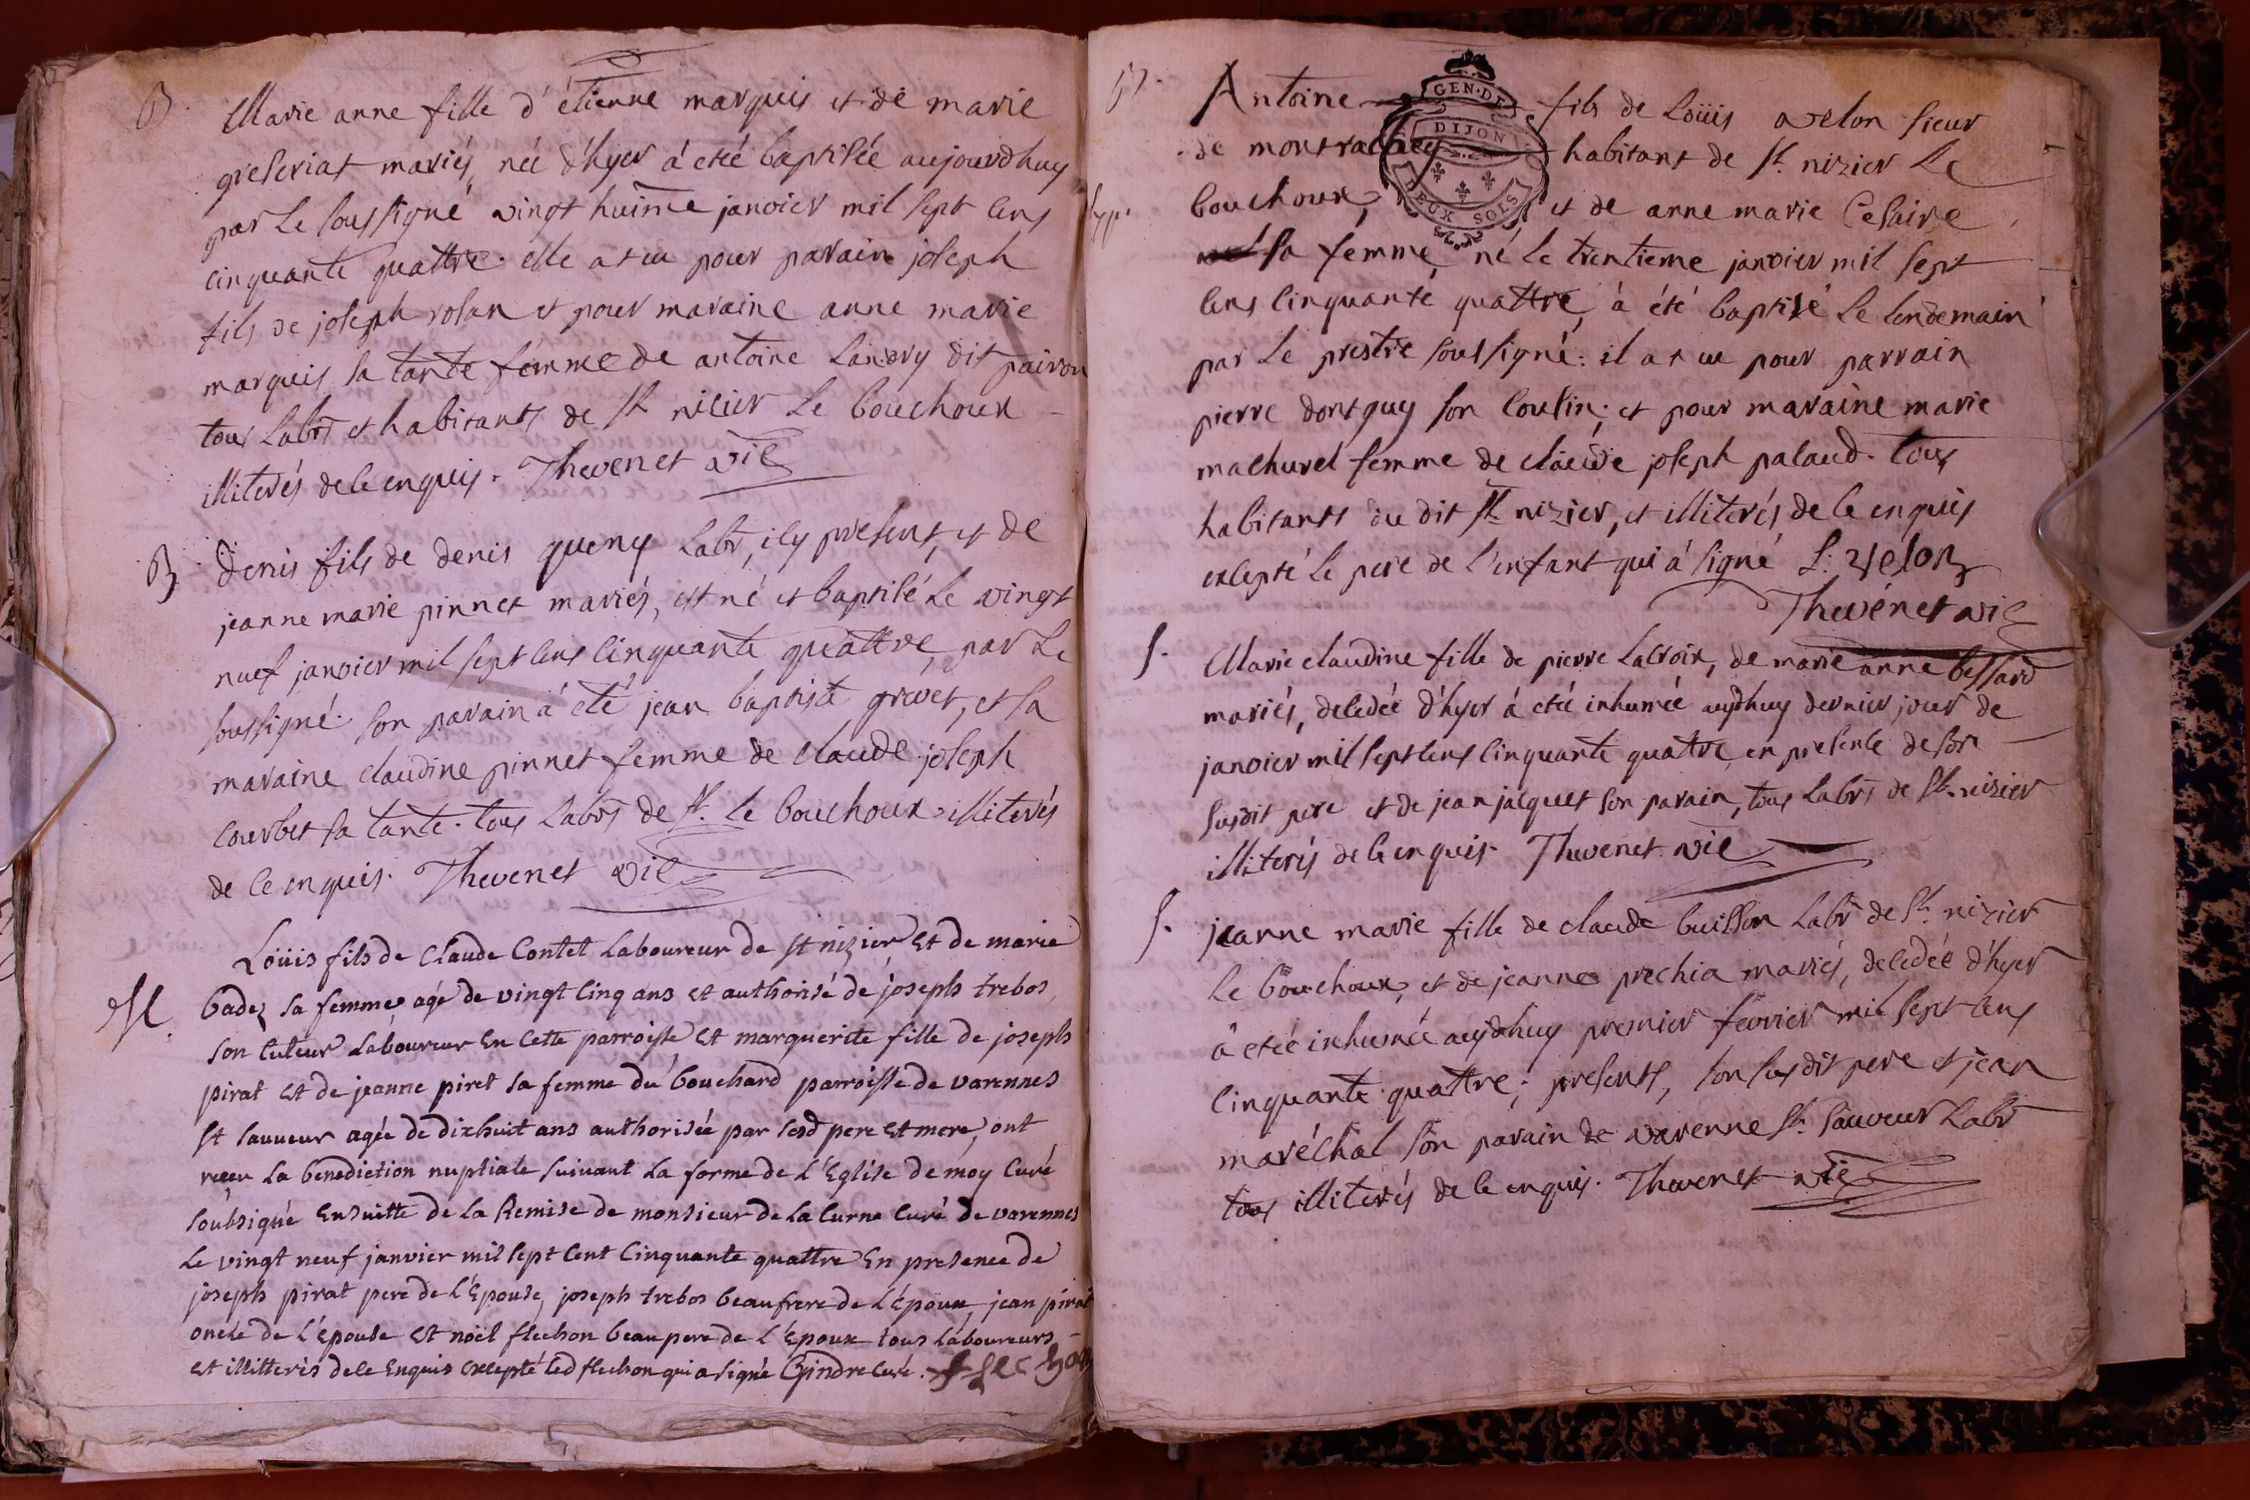 B.
Marie anne fille d'étienne marquis et de marie
greseriat mariés, née d'hyer à eté baptisée aujourdhuy
par le soussigné vingt huime janvier mil sept cens
cinquante quattre. elle at eu pour parain joseph
fils de joseph rolan et pour maraine anne marie
marquis sa tante femme de antoine landry dit pairon
tous labrs et habitants de st nicier le bouchoux
illiterés de ce enquis. Thevenet vic
B
Denis fils de denis queny labr, icy present, et de
jeanne marie pinnet mariés, est né et baptisé le vingt
nuef janvier mil sept cens cinquante quattre, par le
soussigné. son parain à été jean baptiste grivet, et sa
maraine claudine pinnet femme de claude joseph
courbet sa tante. tous labrs de st. le bouchoux illiterés
de ce enquis. Thevenet vic
M.
Loüis fils de Claude Contet Laboureur de st nizier et de marie
badez sa femme, agé de vingt Cinq ans et authorisé de joseph trebos,
son tuteur Laboureur En Cette parroisse Et marguerite fille de joseph
pirat Et de jeanne piret sa femme du bouchard parroisse de varennes
st sauveur agée de dixhuit ans authorisée par sesd pere Et mere, ont
receu La benediction nuptiale suivant La forme de L'Eglise de moy Curé
soubsigné Ensuitte de La Remise de monsieur de La Curne Curé de varennes
Le vingt neuf janvier mil sept Cent Cinquante quattre En presence de
joseph pirat pere de L'Epouse, joseph trebos beaufrere de L'époux, jean pirat
oncle de L'épouse Et noël flechon beaupere de L'Epoux tous Laboureurs
Et illitterés de ce Enquis Excepté Led flechon qui a signé Gindre Curé. f flechon
GEN. DE
DIJON
DEUX SOLS
B.
Antoine fils de Loüis velon sieur
de montrachey habitant de st. nizier le
bouchoux, et de anne marie Cesaire
sa femme, né le trentieme janvier mil sept
cens cinquante quattre, à été baptisé le lendemain
par le prestre soussigné. il at eu pour parrain
pierre dontguy son cousin; et pour maraine marie
machurel femme de claude joseph palaud. tous
habitants du dit st. nizier, et illiterés de ce enquis
excepté le pere de l'enfant qui à signé L: velon
Thevénet vic
S.
Marie claudine fille de pierre lacroix, de marie anne bessard
mariés, decedée d'hyer à eté inhumée aujdhuy dernier jour de
janvier mil sept cens cinquante quattre, en presence de son
susdit pere et de jean jacquet son parain, tous labrs de st. nizier
illiterés de ce enquis. Thevenet vic
S.
jeanne marie fille de claude buisson labr de st. nizier
le bouchoux, et de jeanne prechia mariés, decedée d'hyer
à eté inhumée aujdhuy premier fevrier mil sept cens
cinquante quattre; presents, son susdit pere et jean
maréchal son parain de varenne st. sauveur labr
tous illiterés de ce enquis. Thevenet vic